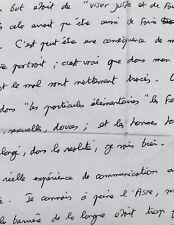 but était de "viser juste et de faire
cela avant qu'être ainsi de faire
C'est peut être une conséquence de m
portrait ; c'est vrai que dans mon
et le mal sont nettement tracés. C
dans "les particules élémentaires" la Fe
, sexuelle, douces ; et les hommes
élargi, dans la réalité, je sais bien.
réelle expérience de communication a
Je connais à peine l'Asie, m
la barrière de la langue était trop